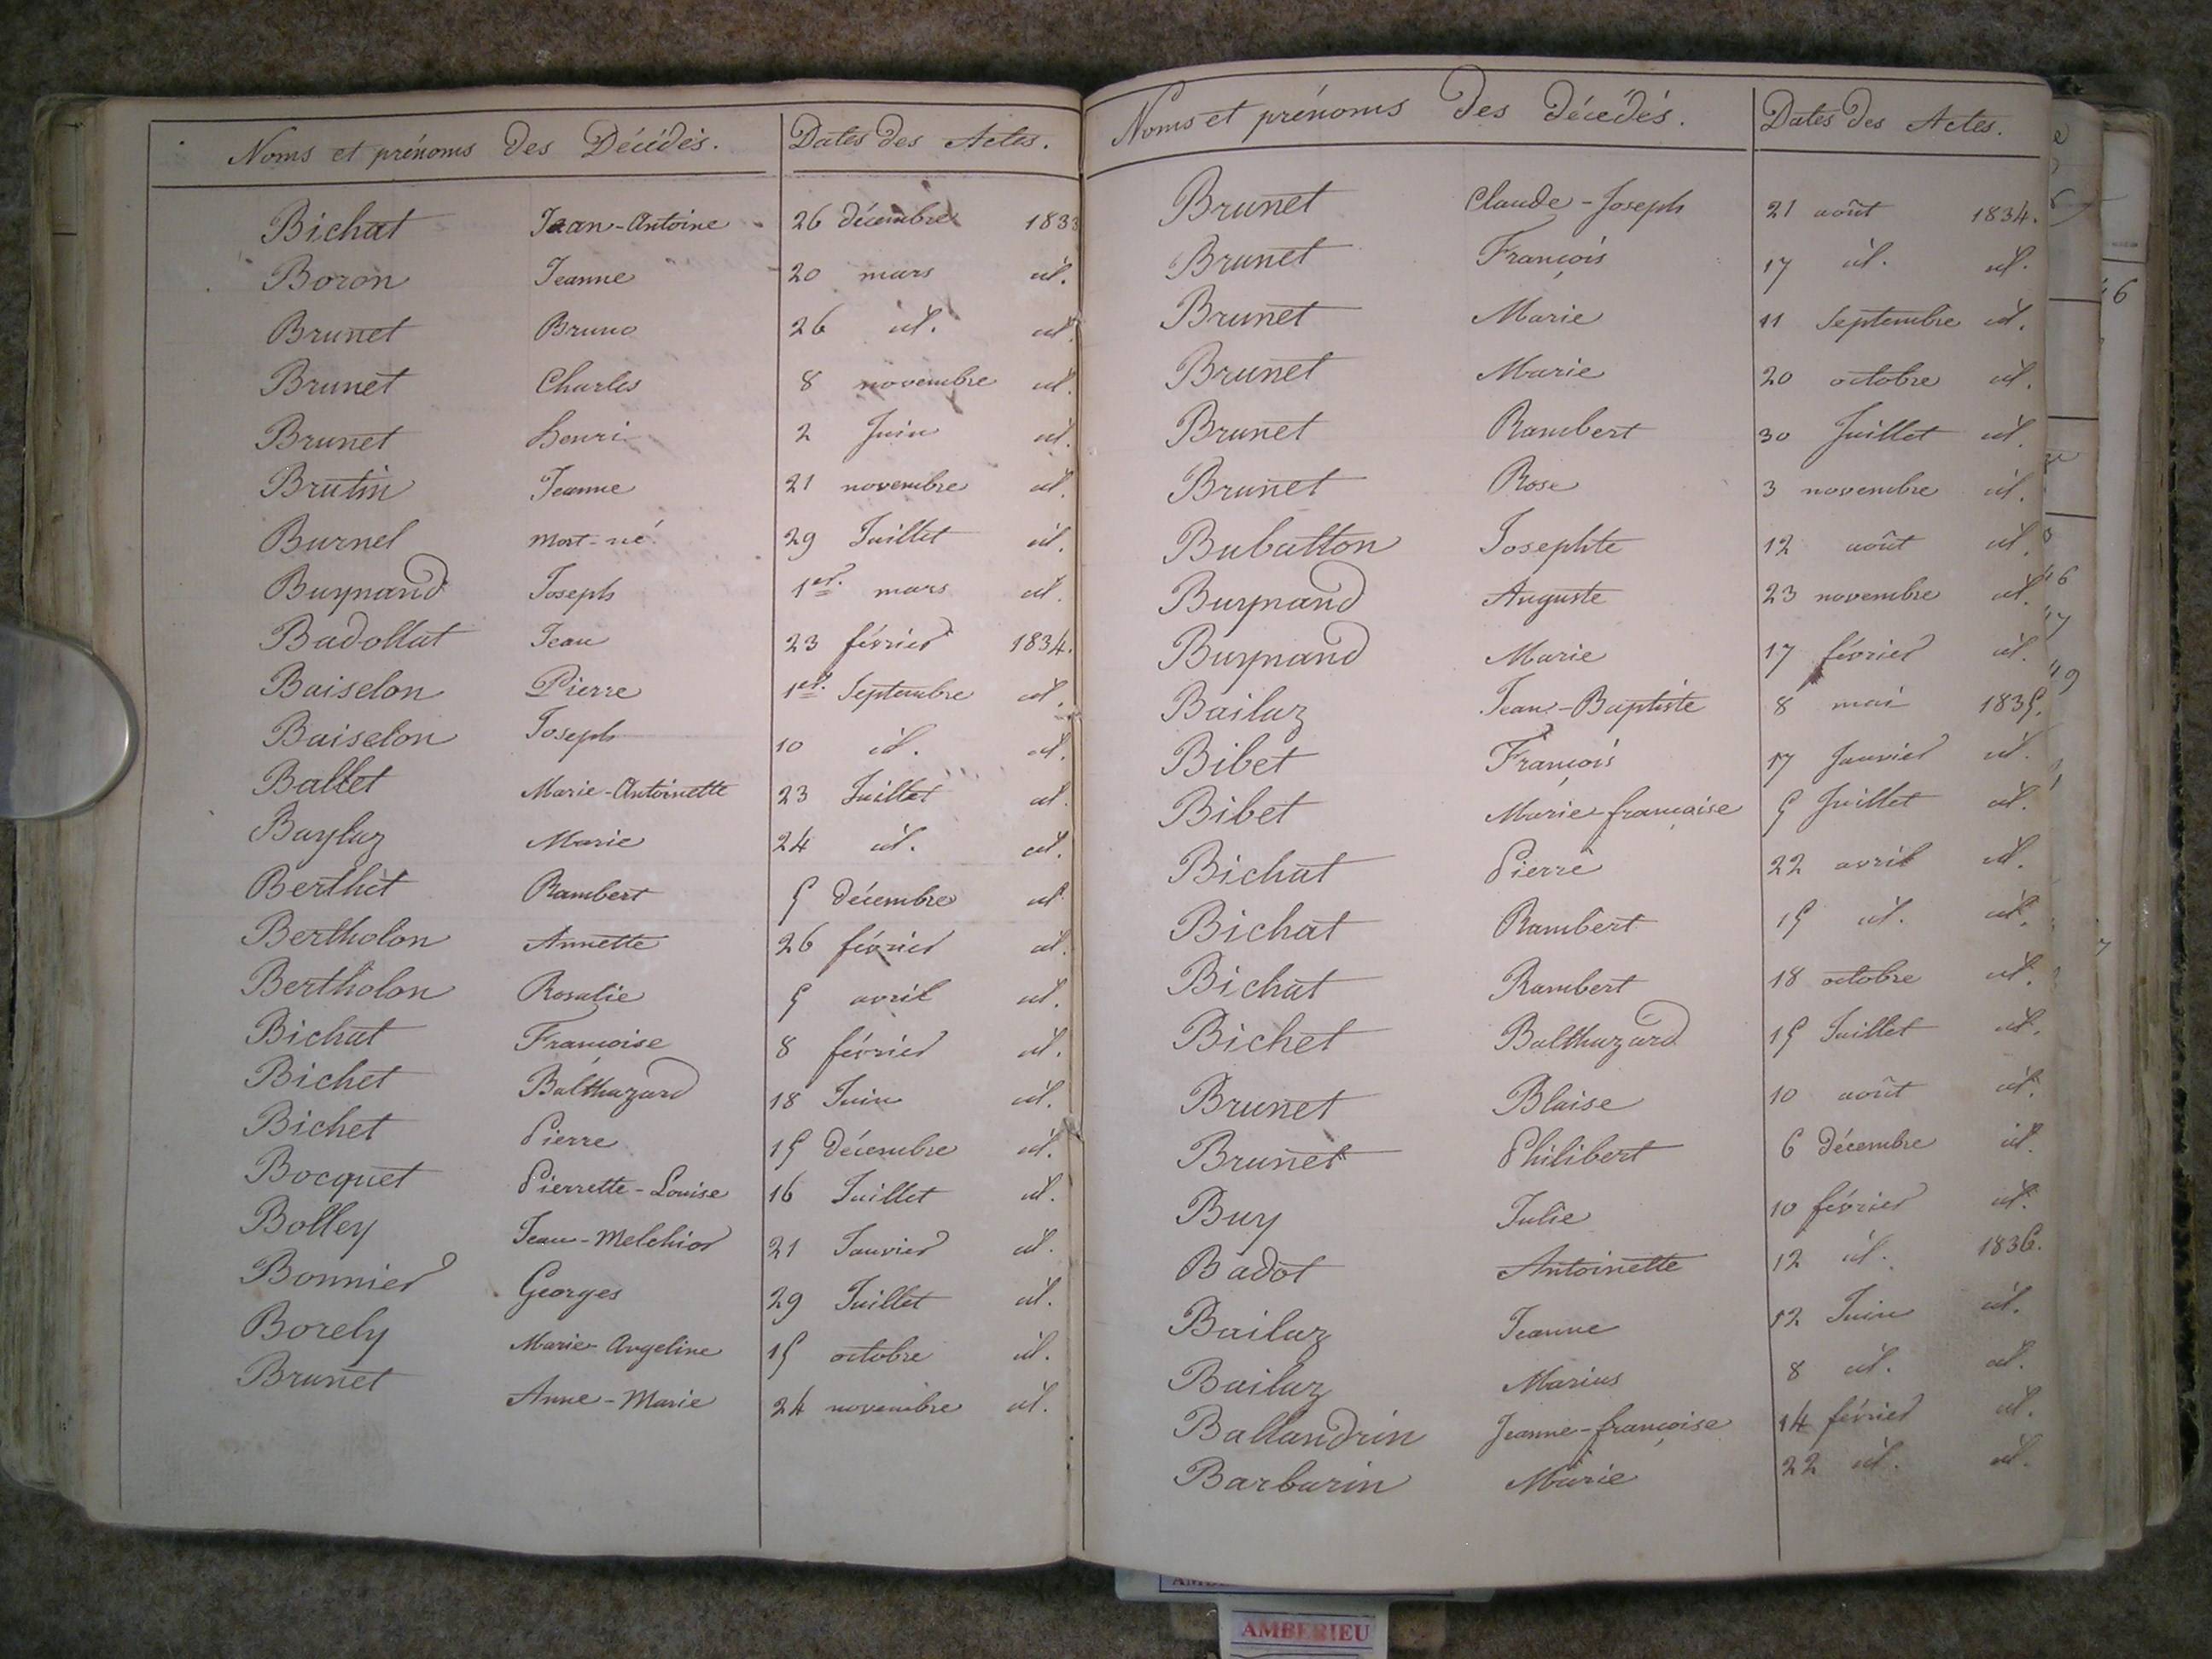 Noms et prénoms des Décédés. Dates des Actes.
Bichat Jean-Antoine 26 décembre 1833
Boron Jeanne 20 mars id.
Brunet Bruno 26 id. id.
Brunet Charles 8 novembre id.
Brunet henri 2 Juin id.
Brutin Jeanne 21 novembre id.
Burnel mort-né 29 Juillet id.
Buynand Joseph 1er. mars id.
Badollat Jean 23 février 1834.
Baiselon Pierre 1er. Septembre id.
Baiselon Joseph 10 id. id.
Ballet Marie-Antoinette 23 Juillet id.
Bayluz Marie 24 id. id.
Berthet Rambert 5 décembre id.
Bertholon Annette 26 février id.
Bertholon Rosalie 5 avril id.
Bichat Françoise 8 février id.
Bichet Balthazard 18 Juin id.
Bichet Pierre 15 décembre id.
Bocquet Pierrette-Louise 16 Juillet id.
Bolley Jean-Melchior 21 Janvier id.
Bonnier Georges 29 Juillet id.
Borely Marie-Angeline 15 octobre id.
Brunet Anne-Marie 24 novembre id.
Noms et prénoms des décédés. Dates des Actes.
Brunet Claude-Joseph 21 août 1834.
Brunet François 17 id. id.
Brunet Marie 11 Septembre id.
Brunet Marie 20 octobre id.
Brunet Rambert 30 Juillet id.
Brunet Rose 3 novembre id.
Bubatton Josephte 12 août id.
Buynand Auguste 23 novembre id.
Buynand Marie 17 février id.
Bailuz Jean-Baptiste 8 mai 1835.
Bibet François 17 Janvier id.
Bibet Marie françoise 5 Juillet id.
Bichat Pierre 22 avril id.
Bichat Rambert 15 id. id.
Bichat Rambert 18 octobre id.
Bichet Balthazard 15 Juillet id.
Brunet Blaise 10 août id.
Brunet Philibert 6 décembre id.
Buy Julie 10 février id.
Badot Antoinette 12 id. 1836.
Bailuz Jeanne 12 Juin id.
Bailuz Marius 8 id. id.
Ballandrin Jeanne-françoise 14 février id.
Barbarin Marie 22 id. id.
AMBERIEU